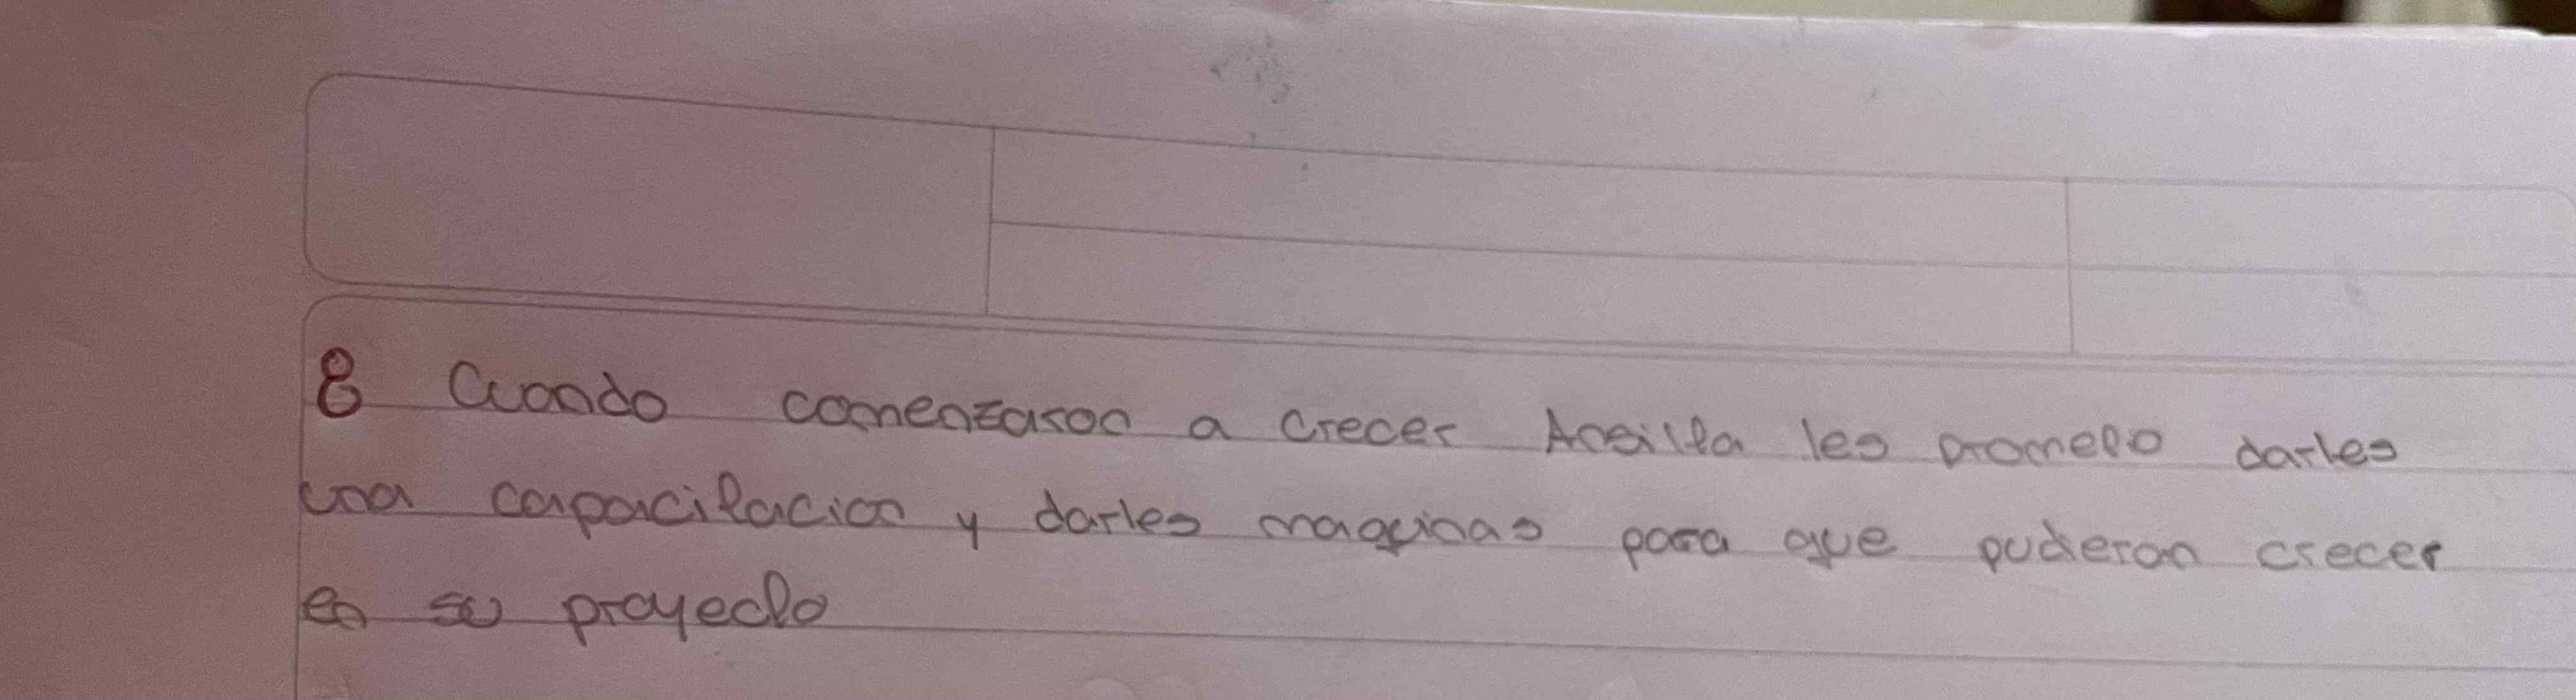 8 Cuando comenzaron a crecer les prometo darles
una capacitacion y darles maquinas para que pudieran crecer
en su proyecto